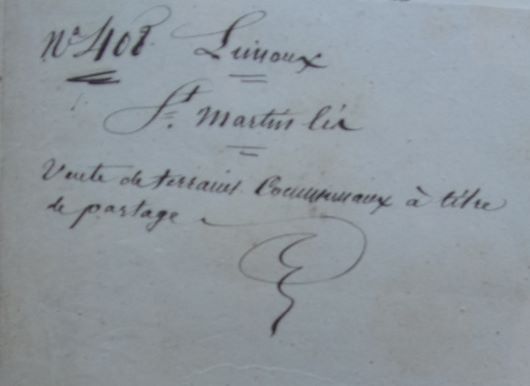 N° 408. Limoux
St. Martin lis
Vente de terrains Communaux à titre
de partage